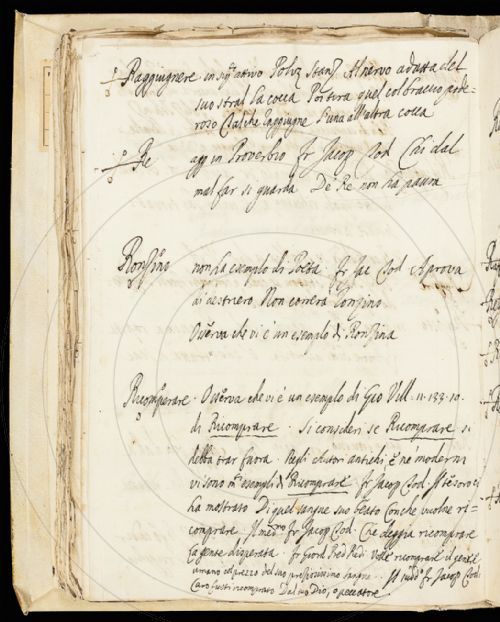 Raggiugnere in sig.° attivo Poliz Stanz Al nervo adatta del
suo stral la cocca Poi tira quel col braccio pode=
roso Tal che raggiugne l'una all'altra cocca
Re agg in Proverbio Fr Jacop Tod Chi dal
mal far si guarda De Re non ha paura
Ronzino non ha esempio di Poeta. Fr Jac Tod A prova
di destriero Non correrà Ronzino
Osserva che vi è un esempio di Ronzina
Ricomperare. Osserva che vi è un esempio di Gio Vill. 11. 133. 10.
di Ricomprare. Si consideri se Ricomprare si
debba trar fuora. Negli Autori antichi e ne moderni
vi sono m.ti esempli di Ricomprare. Fr Jacop Tod. Il tesoro ci
ha mostrato Di quel sangue suo beato Con che volse ri=
comprare. Il med.mo Fr Jacop Tod. Che deggia ricomprare
La gente disperata. Fr Giord Pred Red. Volle ricomprare il gener
umano col prezzo del suo preziosissimo sangue. Il med.o Fr Jacop Tod.
Caro fusti ricomprato Dal tuo Dio, o peccatore